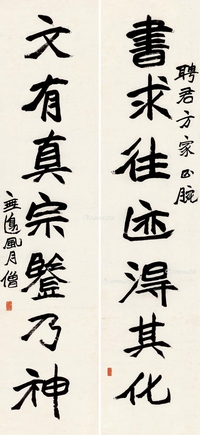 聘君方家正腕
書求往迹得其化
文有真宗鑒乃神
無邊風月僧